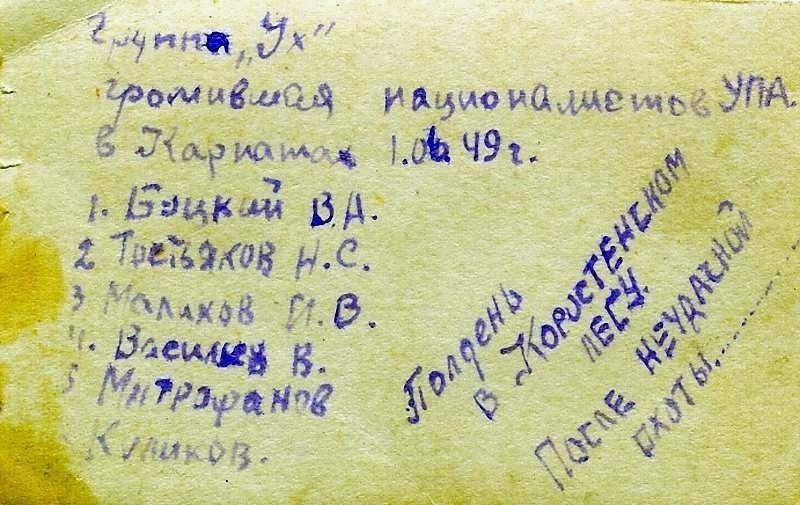 Группа „Ух"
громившая националистов УПА.
в Карпатах 1.06.49 г.
1. Буцкий В.А.
2 Третьяков Н.С.
3 Малахов И.В.
4. Васильев В.
5 Митрофанов
Куликов.
Полдень
в Користенском
лесу.
После неудачной
охоты..........